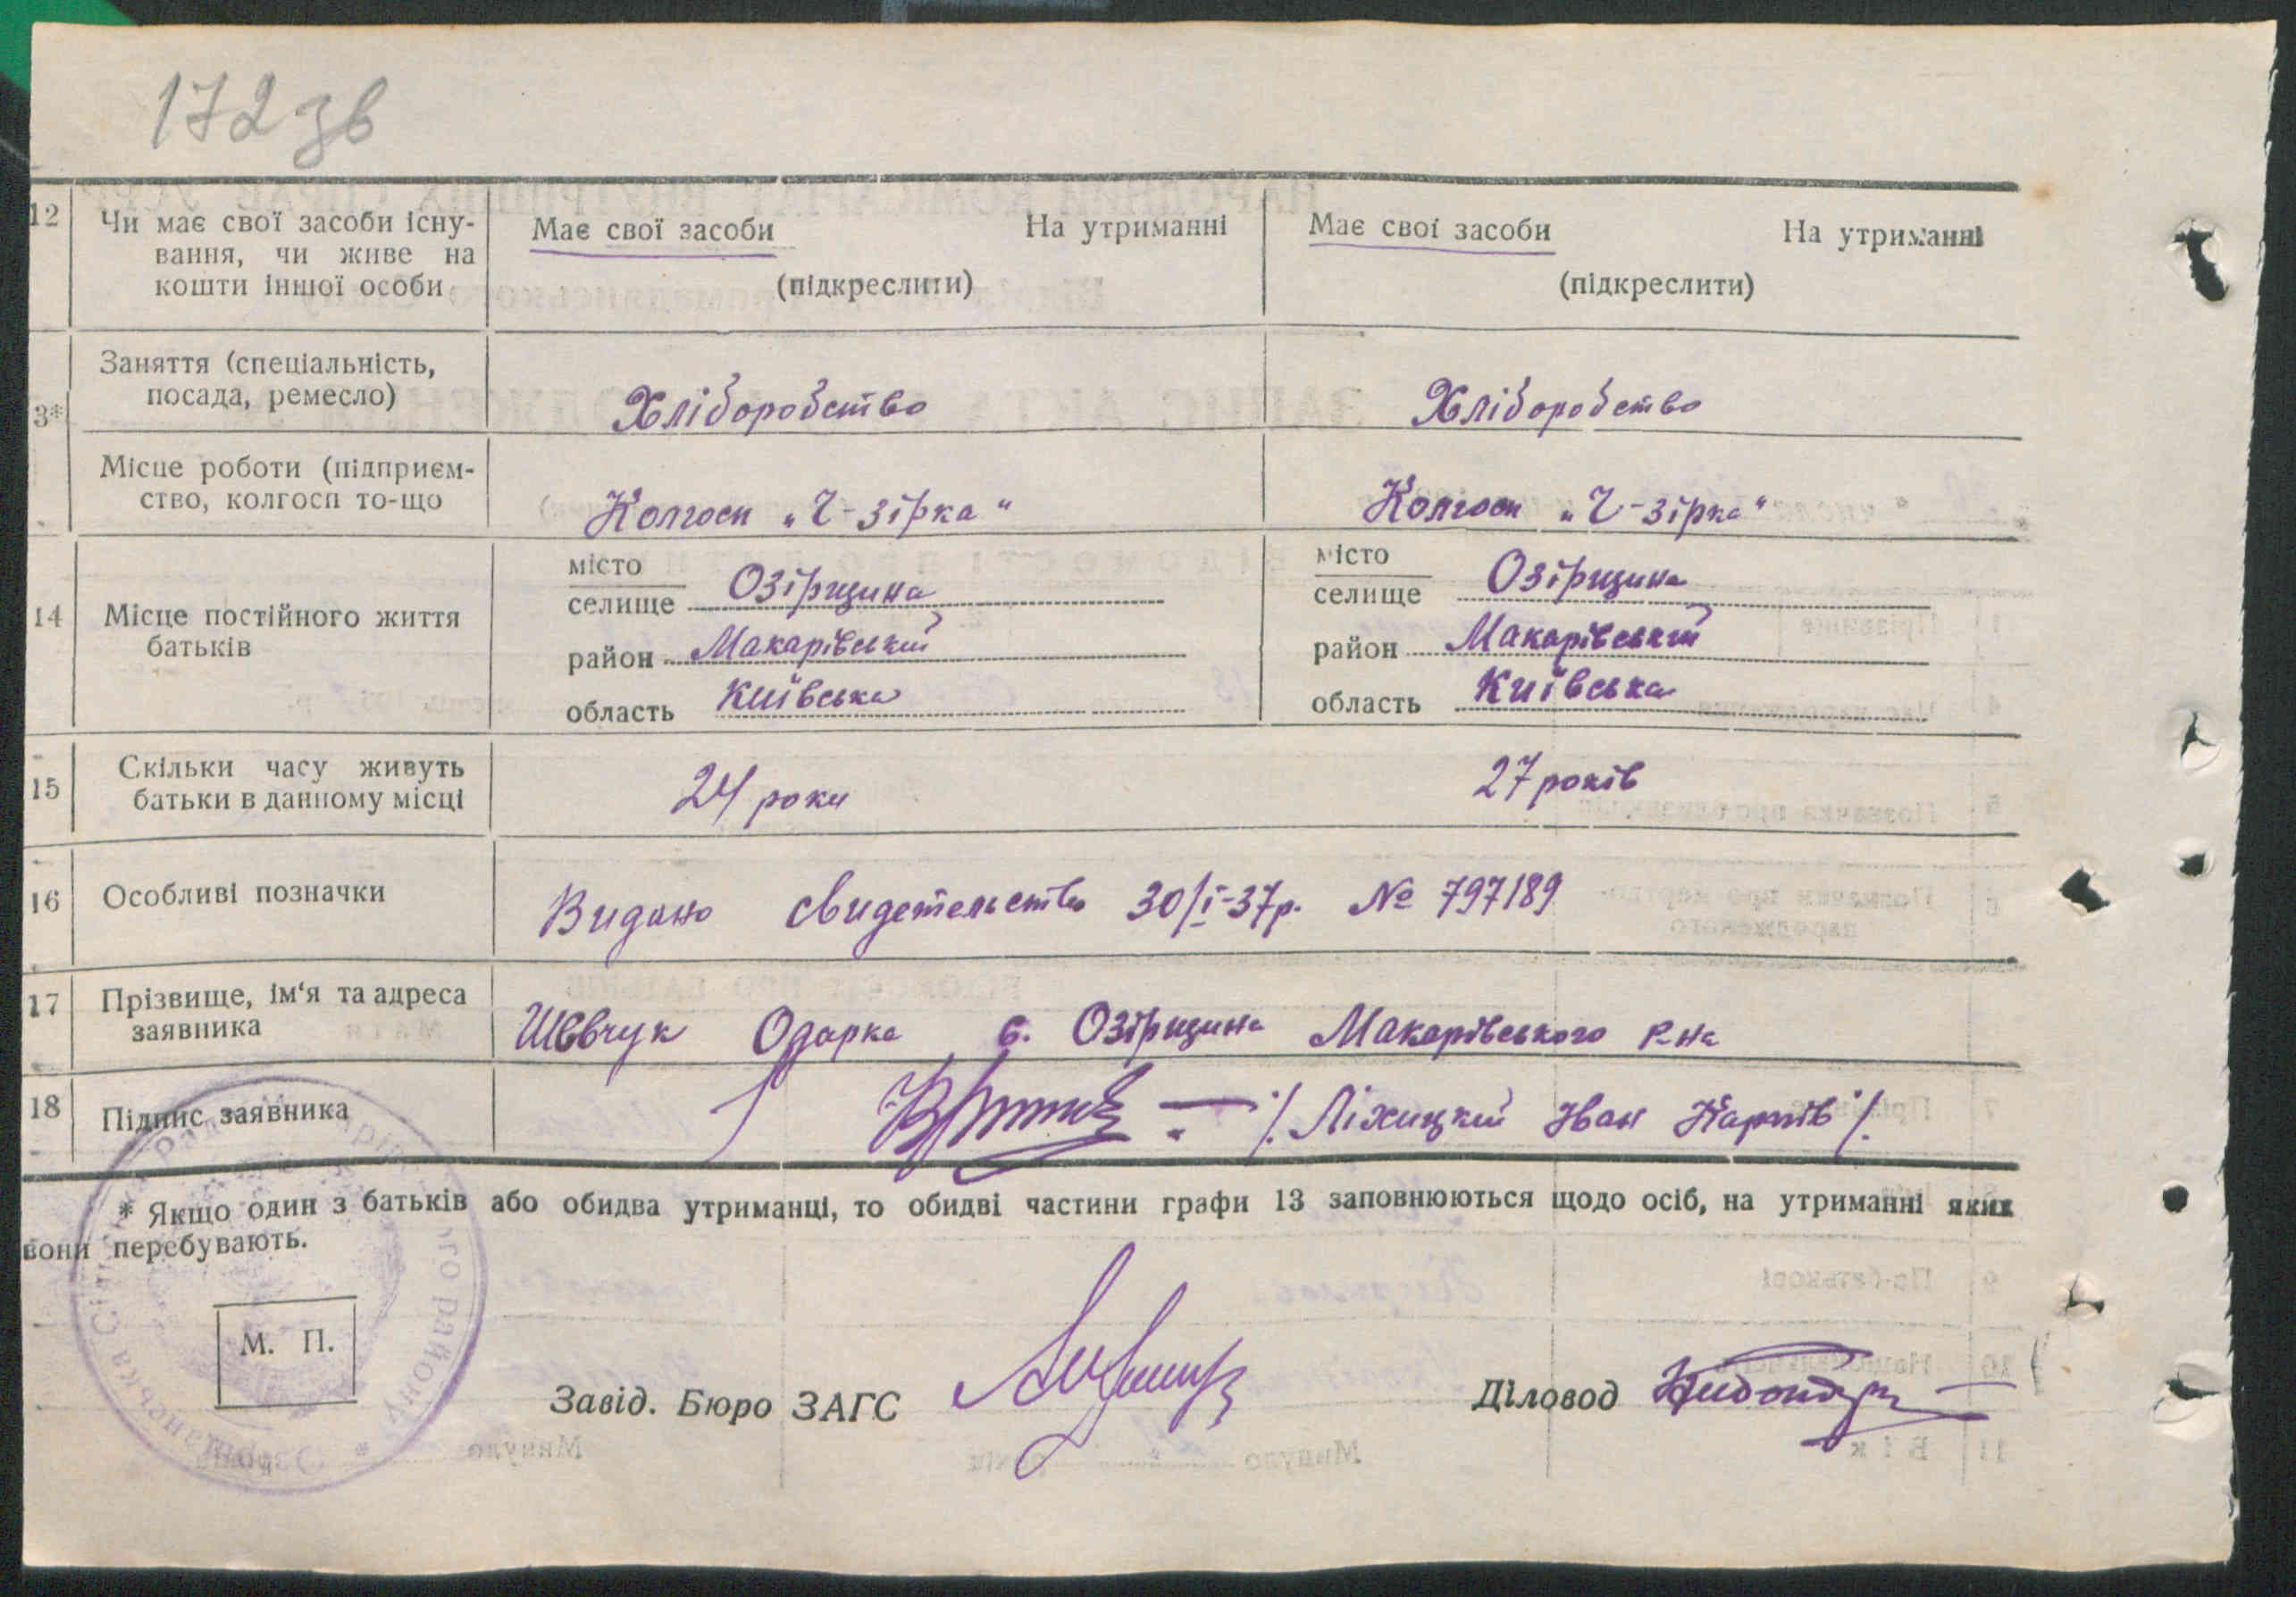 172 зв
12 Чи має свої засоби існу-
вання, чи живе на
кошти іншої особи
Має свої засоби На утриманні
(підкреслити)
Має свої засоби На утриманні
(підкреслити)
3*
Заняття (спеціальність,
посада, ремесло)
Хліборобство
Хліборобство
Місце роботи (підприєм-
ство, колгосп то-що
Колгосп „Ч-зірка“
Колгосп „Ч-зірка“
14 Місце постійного життя
батьків
місто
селище Озірщина
район Макарівський
область Київська
місто
селище Озірщина
район Макарівський
область Київська
15 Скільки часу живуть
батьки в данному місці
24 роки
27 років
16 Особливі позначки
Видано свидетельство 30/I-37р. № 797189
17 Прізвище, ім'я та адреса
заявника
Шевчук Одарка с. Озірщина Макарівського Р-на
18 Підпис заявника
/. Ліхицкий Іван Карпів ./.
* Якщо один з батьків або обидва утриманці, то обидві частини графи 13 заповнюються щодо осіб, на утриманні яких
вони перебувають.
М. П.
Завід. Бюро ЗАГС
Діловод